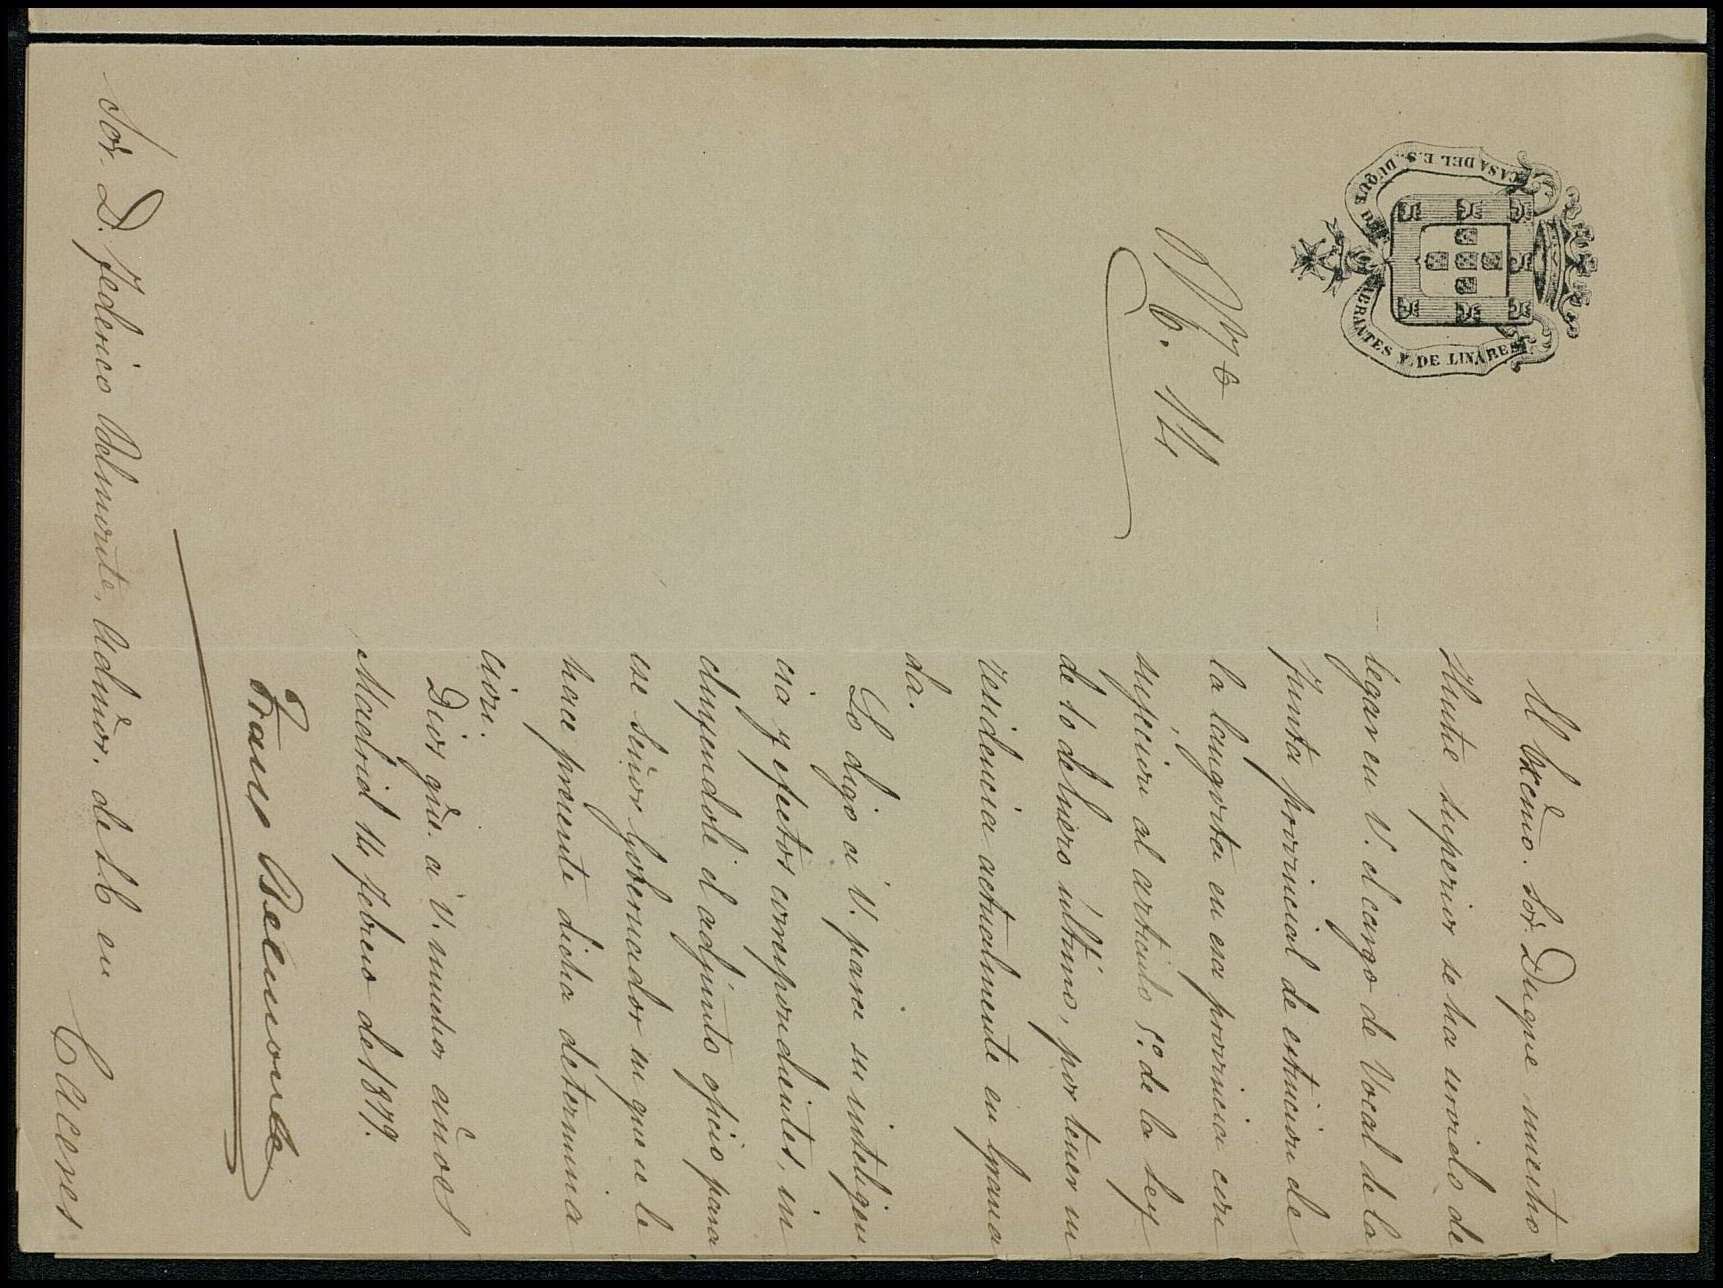 CASA DEL E.S. DUQUE DE ABRANTES Y DE LINARES
N.º 14
El Excmo. Sor. Duque nuestro
Ilustre superior se ha servido de
legar en V. el cargo de Vocal de la
Junta provincial de estincion de
la langosta en esa provincia con
sujecion al articulo 5.º de la Ley
de 10 de Enero último, por tener su
residencia actualmente en Grana
da.
Lo digo a V. para su inteligen
cia y efectos correspondientes, in
cluyendole el adjunto oficio para
ese Señor Gobernador en que se le
hace presente dicha determina
cion.
Dios gũe. a V. muchos años
Madrid 14 febrero de 1879.
Franco Belmonte
Sor. D. Federico Belmonte, Admor. de S.E. en Caceres